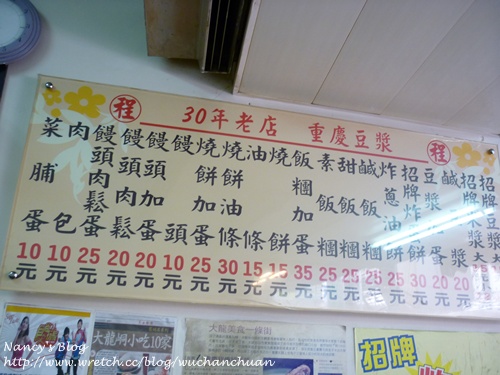 程 30年老店 重慶豆漿 程
鹹漿 20元
豆漿蛋 20元
招牌炸餅 20元
炸蔥餅 25元
鹹飯糰 25元
甜飯糰 25元
素飯糰 25元
飯糰加蛋 35元
燒餅 15元
油條 15元
燒餅油條 30元
燒餅加蛋 25元
饅頭 10元
饅頭加蛋 20元
饅頭肉鬆 20元
饅頭肉鬆蛋 25元
肉包 10元
菜脯蛋 10元
大龍峒小吃10家
大龍美食一條街
招牌
Nancy's Blog
http://www.wretch.cc/blog/wuchanchuan